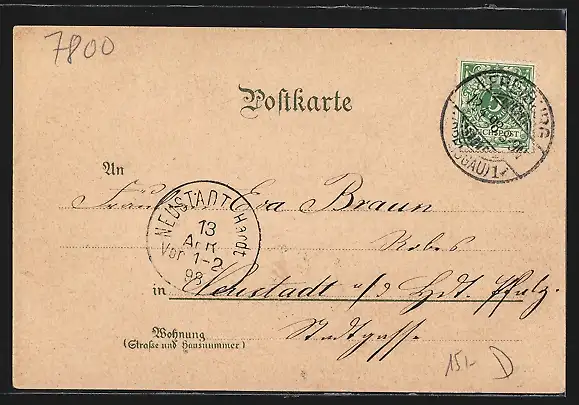 7800
Postkarte
5
REICHSPOST
FREIBURG
(BREISGAU) 1
An
Fräul. Eva Braun
NEUSTADT (Hardt
13
Apr
Vor 1-2
98
Robes
in Neustadt a/d Hdt. Pfalz.
Wohnung
(Straße und Hausnummer)
Stadtgasse
15,- D